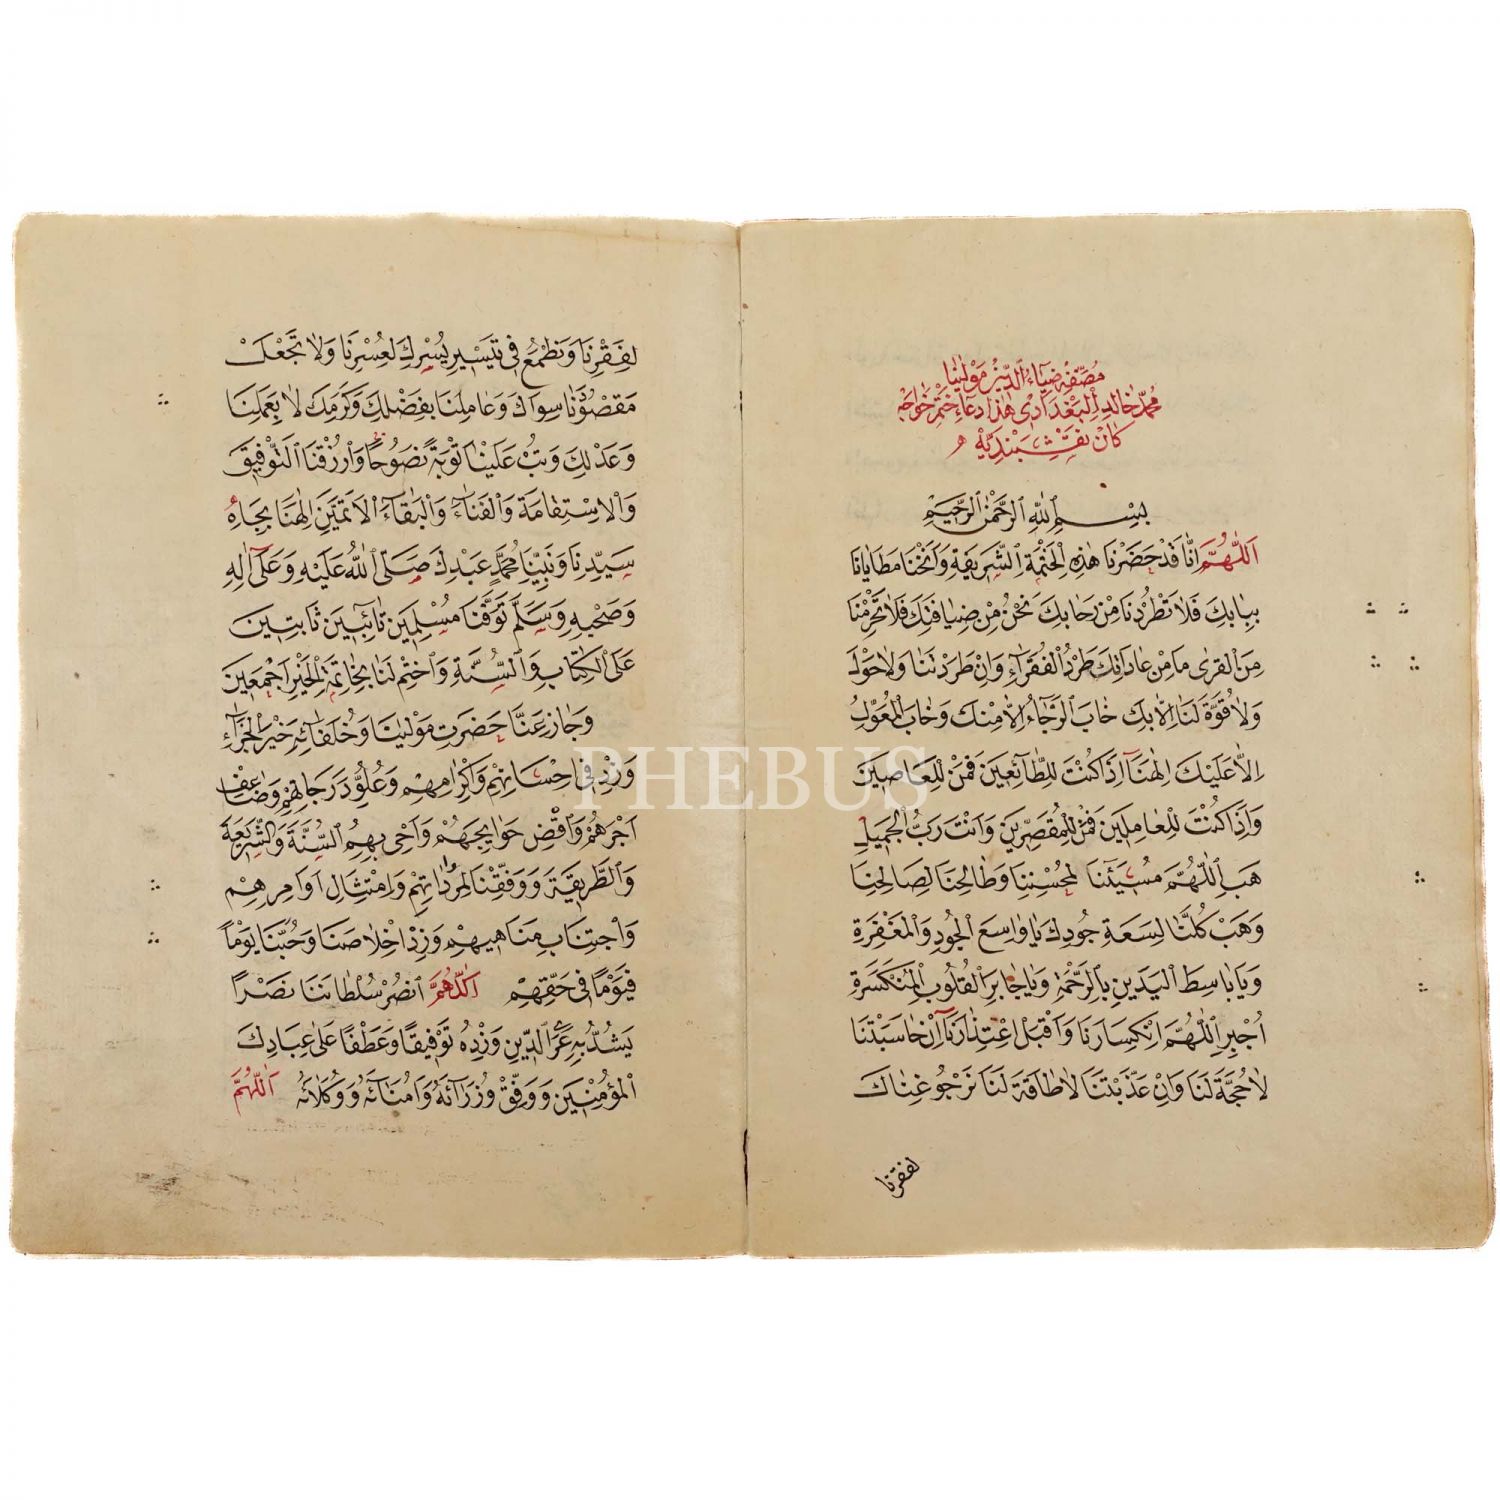 مُصَنِّفُهُ ضِيَاءُ الدِّينِ مَوْلَانَا
مُحَمَّد خَالِدِ الْبَغْدَادِى هٰذَا دُعَاءِ خَتْمِ خَوَاجَهْ
كَانْ نَقْشِبَنْدِيَّهْ
بِسْمِ اللهِ الرَّحْمٰنِ الرَّحِيمِ
اَللّٰهُمَّ اِنَّا قَدْ حَضَرْنَا هٰذِهِ الْخَتْمَةَ الشَّرِيفَةَ وَاَنَخْنَا مَطَايَانَا
بِبَابِكَ فَلَا تَطْرُدْنَا مِنْ رِحَابِكَ نَحْنُ مِنْ ضِيَافَتِكَ فَلَا تَحْرِمْنَا
مِنَ الْقِرٰى مَا مِنْ عَادَاتِكَ طَرْدُ الْفُقَرَاءِ وَاِنْ طَرَدْتَنَا وَلَا حَوْلَ
وَلَا قُوَّةَ لَنَا اِلَّا بِكَ خَابَ الرَّجَاءُ اِلَّا مِنْكَ وَخَابَ الْمُعَوَّلُ
اِلَّا عَلَيْكَ اِلٰهَنَا اِذَا كُنْتَ لِلطَّائِعِينَ فَمَنْ لِلْعَاصِينَ
وَاِذَا كُنْتَ لِلْعَامِلِينَ فَمَنْ لِلْمُقَصِّرِينَ وَاَنْتَ رَبُّ الْجَمِيلِ
هَبِ اللّٰهُمَّ مُسِيئَنَا لِمُحْسِنِنَا وَطَالِحَنَا لِصَالِحِنَا
وَهَبْ كُلَّنَا لِسَعَةِ جُودِكَ يَا وَاسِعَ الْجُودِ وَالْمَغْفِرَةِ
وَيَا بَاسِطَ الْيَدَيْنِ بِالرَّحْمَةِ وَيَا جَابِرَ الْقُلُوبِ الْمُنْكَسِرَةِ
اُجْبُرِ اللّٰهُمَّ انْكِسَارَنَا وَاقْبَلْ اِعْتِذَارَنَا اِنْ حَاسَبْتَنَا
لَا حُجَّةَ لَنَا وَاِنْ عَذَّبْتَنَا لَا طَاقَةَ لَنَا نَرْجُو غِنَاكَ
لفقرنا
لِفَقْرِنَا وَنَطْمَعُ فِى تَيْسِيرِ يُسْرِكَ لِعُسْرِنَا وَلَا تَجْعَلْ
مَقْصُودَنَا سِوَاكَ وَعَامِلْنَا بِفَضْلِكَ وَكَرَمِكَ لَا بِعَمَلِنَا
وَعَدْلِكَ وَتُبْ عَلَيْنَا تَوْبَةً نَصُوحًا وَارْزُقْنَا التَّوْفِيقَ
وَالْاِسْتِقَامَةَ وَالْفَنَاءَ وَالْبَقَاءَ الْاَتَمَّيْنِ اِلٰهَنَا بِجَاهِ
سَيِّدِنَا وَنَبِيِّنَا مُحَمَّدٍ عَبْدِكَ صَلَّى اللهُ عَلَيْهِ وَعَلٰى اٰلِهِ
وَصَحْبِهِ وَسَلَّمَ تَوَفَّنَا مُسْلِمِينَ تَائِبِينَ ثَابِتِينَ
عَلَى الْكِتَابِ وَالسُّنَّةِ وَاخْتِمْ لَنَا بِخَاتِمَةِ الْخَيْرِ اَجْمَعِينَ
وَجَازِ عَنَّا حَضَرْتِ مَوْلٰينَا وَخُلَفَائِهِ خَيْرَ الْجَزَاءِ
وَزِدْ فِى اِحْسَانِهِمْ وَاِكْرَامِهِمْ وَعُلُوِّ دَرَجَاتِهِمْ وَضَاعِفْ
اَجْرَهُمْ وَاقْضِ حَوَايِجَهُمْ وَاَحْىِ بِهِمُ السُّنَّةَ وَالشَّرِيعَةَ
وَالطَّرِيقَةَ وَوَفِّقْنَا لِمُرَادَاتِهِمْ وَامْتِثَالِ اَوَامِرِهِمْ
وَاجْتِنَابِ مَنَاهِيهِمْ وَزِدْ اِخْلَاصَنَا وَحُبَّنَا يَوْمًا
فَيَوْمًا فِى حَقِّهِمْ اَللّٰهُمَّ انْصُرْ سُلْطَانَنَا نَصْرًا
يَشُدُّ بِهِ عُرَى الدِّينِ وَزِدْهُ تَوْفِيقًا وَعَطْفًا عَلٰى عِبَادِكَ
الْمُؤْمِنِينَ وَوَفِّقْ وُزَرَائَهُ وَاُمَنَائَهُ وَوُكَلَائَهُ اَللّٰهُمَّ
PHEBUS